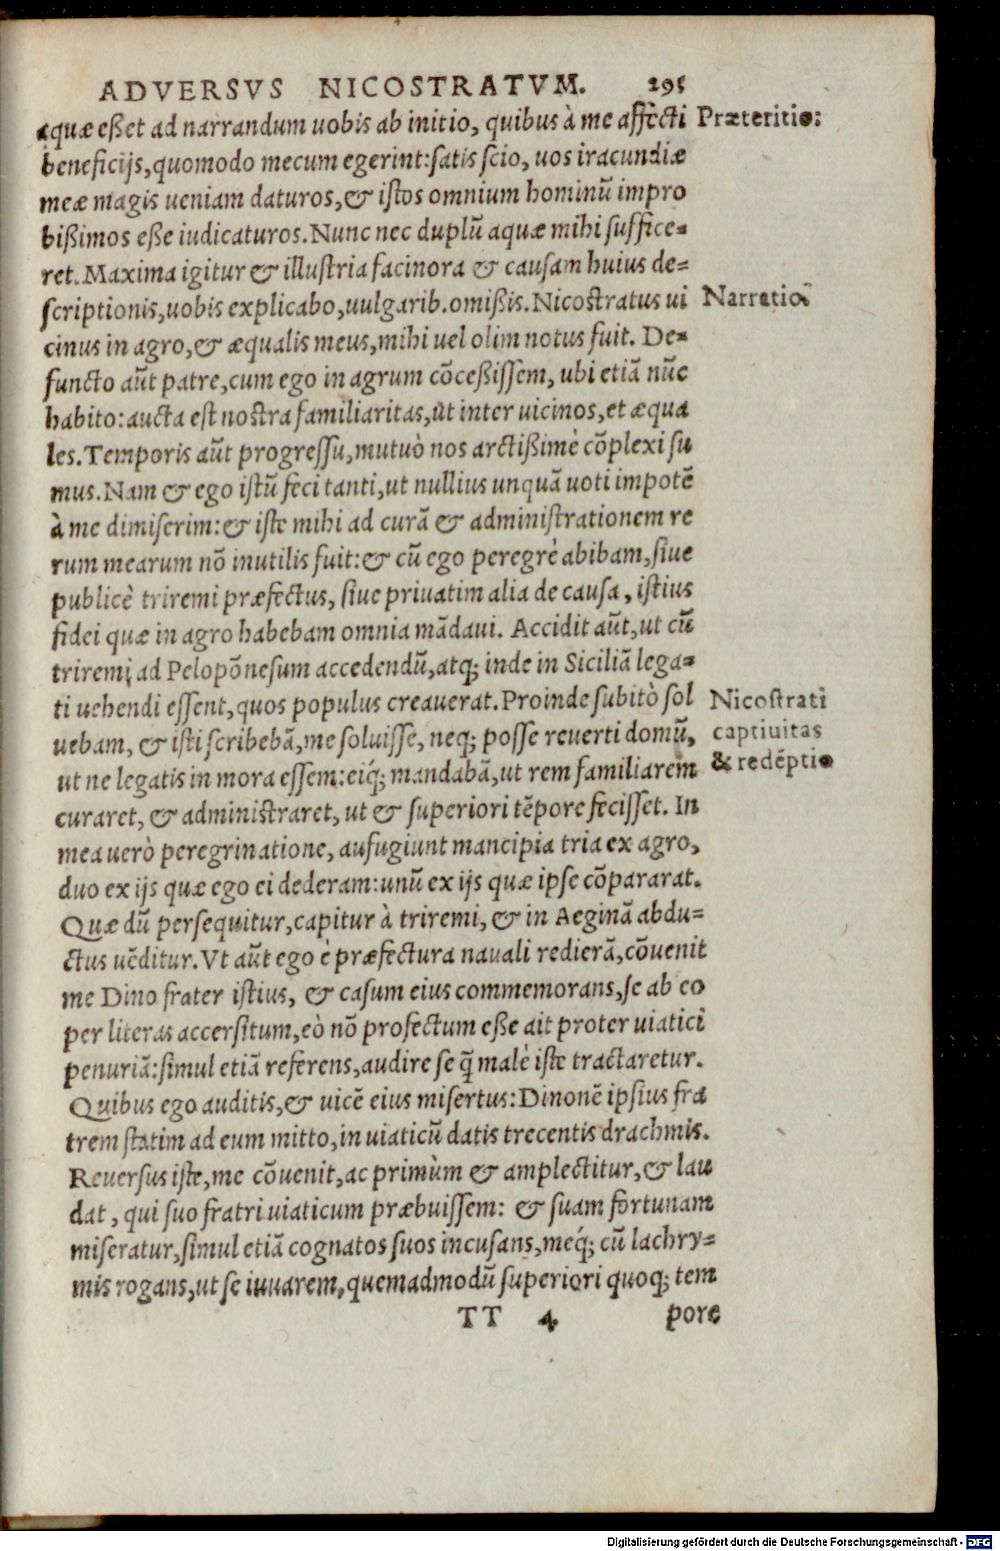 ADVERSVS NICOSTRATVM. 295
aquæ eßet ad narrandum uobis ab initio, quibus à me affecti
beneficijs, quomodo mecum egerint: satis scio, uos iracundiæ
meæ magis ueniam daturos, & istos omnium hominū impro
bißimos eße iudicaturos. Nunc nec duplū aquæ mihi suffice=
ret. Maxima igitur & illustria facinora & causam huius de=
scriptionis, uobis explicabo, uulgarib. omißis. Nicostratus ui
cinus in agro, & æqualis meus, mihi uel olim notus fuit. De=
functo aūt patre, cum ego in agrum cōceßissem, ubi etiā nūc
habito: aucta est nostra familiaritas, ut inter uicinos, et æqua
les. Temporis aūt progressu, mutuò nos arctißimè cōplexi su
mus. Nam & ego istū feci tanti, ut nullius unquā uoti impotē
à me dimiserim: & iste mihi ad curā & administrationem re
rum mearum nō inutilis fuit: & cū ego peregrè abibam, siue
publicè triremi præfectus, siue priuatim alia de causa, istius
fidei quæ in agro habebam omnia mādaui. Accidit aūt, ut cū
triremi ad Pelopōnesum accedendū, atq; inde in Siciliā lega=
ti uehendi essent, quos populus creauerat. Proinde subitò sol
uebam, & isti scribebā, me soluisse, neq; posse reuerti domū,
ut ne legatis in mora essem: eiq́; mandabā, ut rem familiarem
curaret, & administraret, ut & superiori tēpore fecisset. In
mea uerò peregrinatione, aufugiunt mancipia tria ex agro,
duo ex ijs quæ ego ei dederam: unū ex ijs quæ ipse cōpararat.
Quæ dū persequitur, capitur à triremi, & in Aeginā abdu=
ctus uēditur. Vt aūt ego è præfectura nauali redierā, cōuenit
me Dino frater istius, & casum eius commemorans, se ab eo
per literas accersitum, eò nō profectum eße ait proter uiatici
penuriā: simul etiā referens, audire se q̄ malè iste tractaretur.
Quibus ego auditis, & uicē eius misertus: Dinonē ipsius fra
trem statim ad eum mitto, in uiaticū datis trecentis drachmis.
Reuersus iste, me cōuenit, ac primùm & amplectitur, & lau
dat, qui suo fratri uiaticum præbuissem: & suam fortunam
miseratur, simul etiā cognatos suos incusans, meq́; cū lachry=
mis rogans, ut se iuuarem, quemadmodū superiori quoq; tem
TT 4 pore
Præteritio:
Narratiō
Nicostrati
captiuitas
& redēptio
Digitalisierung gefördert durch die Deutsche Forschungsgemeinschaft - DFG